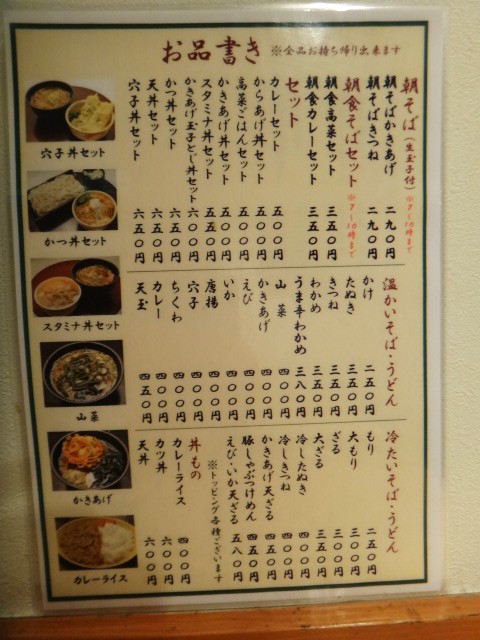 お品書き ※全品お持ち帰り出来ます
朝そば(生玉子付)※7~10時まで
朝そばかきあげ 二九〇円
朝そばきつね 二九〇円
朝食そばセット ※7~10時まで
朝食高菜セット 三五〇円
朝食カレーセット 三五〇円
セット
カレーセット 五〇〇円
からあげ丼セット 五五〇円
高菜ごはんセット 五〇〇円
かきあげ丼セット 五〇〇円
スタミナ丼セット 五五〇円
かきあげ玉子とじ丼セット 六〇〇円
かつ丼セット 六五〇円
天丼セット 六五〇円
穴子丼セット 六五〇円
温かいそば・うどん
かけ 二五〇円
たぬき 三五〇円
きつね 三五〇円
わかめ 三五〇円
うま辛わかめ 三八〇円
山菜 四〇〇円
かきあげ 四〇〇円
えび 四〇〇円
いか 四〇〇円
唐揚 四〇〇円
穴子 四〇〇円
ちくわ 四〇〇円
カレー 四〇〇円
天玉 四五〇円
冷たいそば・うどん
もり 二五〇円
大もり 三五〇円
ざる 三〇〇円
大ざる 三五〇円
冷したぬき 四〇〇円
冷しきつね 四〇〇円
かきあげ天ざる 四五〇円
豚しゃぶつけめん 四五〇円
えび・いか天ざる 五八〇円
※トッピング各種ございます
丼もの
カレーライス 四〇〇円
カツ丼 六〇〇円
天丼 六〇〇円
穴子丼セット
かつ丼セット
スタミナ丼セット
山菜
かきあげ
カレーライス